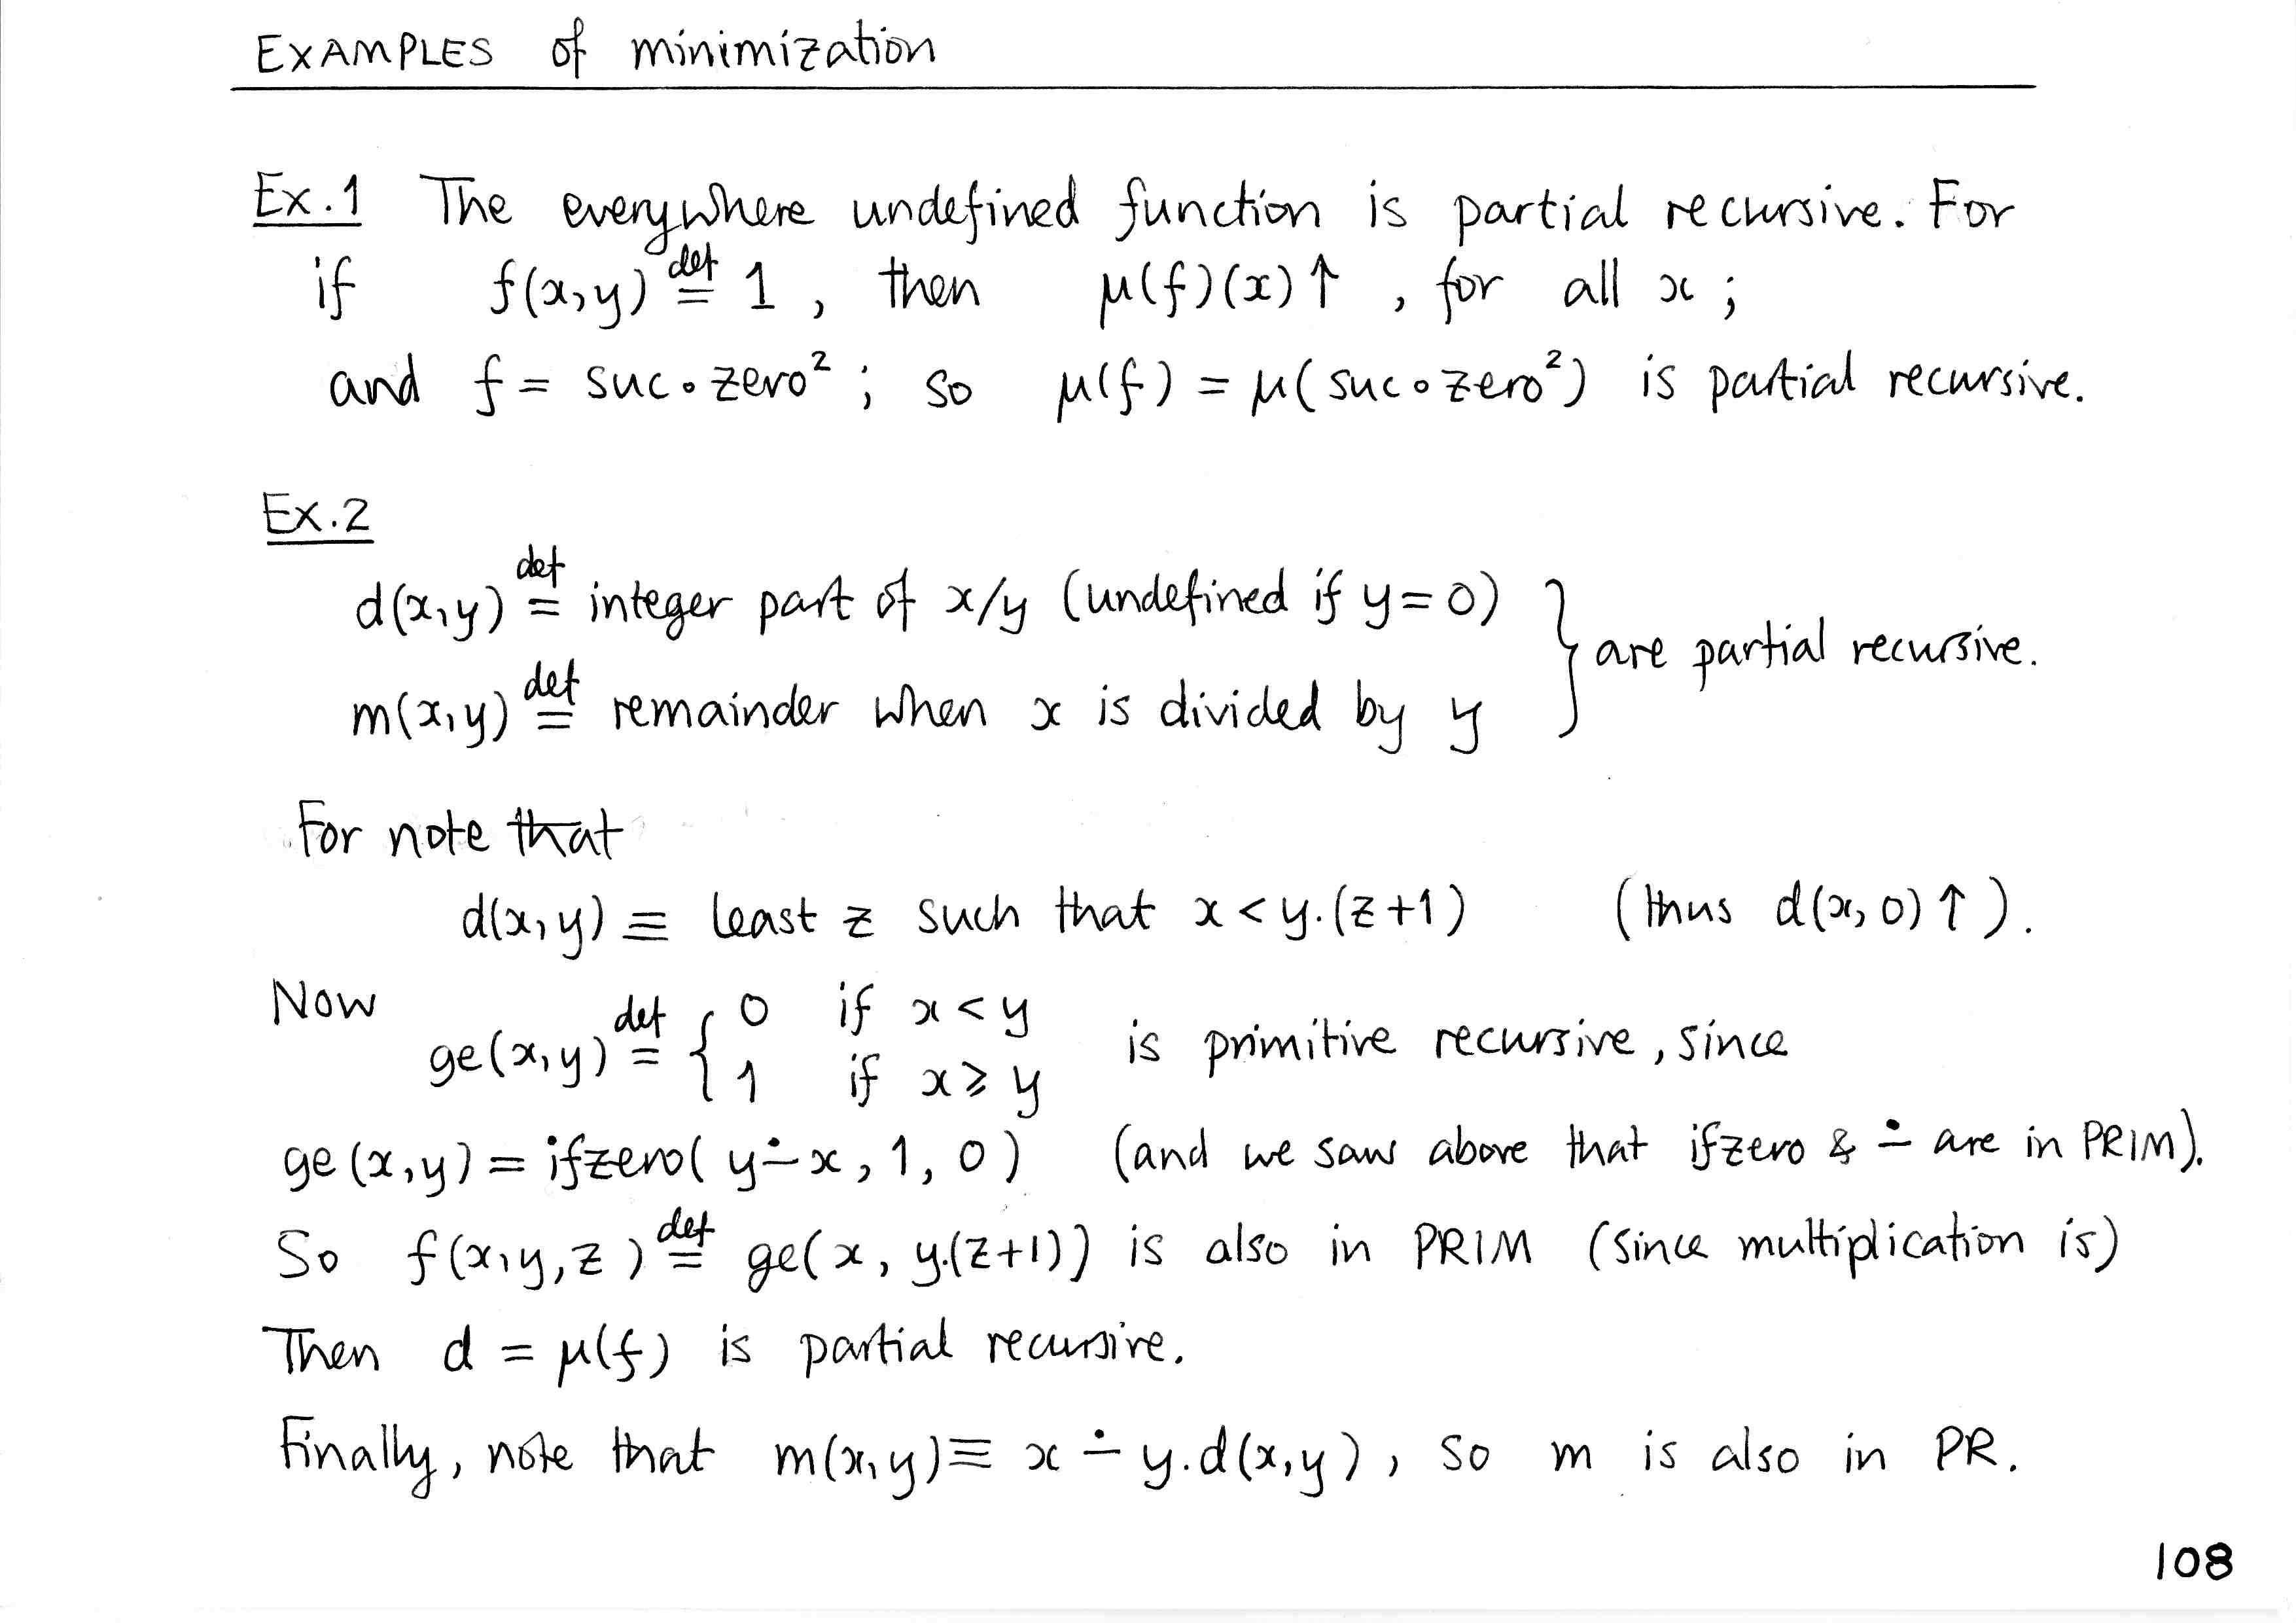 EXAMPLES of minimization
Ex.1 The everywhere undefined function is partial recursive. For
if f(x,y) def= 1 , then μ(f)(x)↑ , for all x ;
and f = suc∘zero² ; so μ(f) = μ(suc∘zero²) is partial recursive.
Ex.2
d(x,y) def= integer part of x/y (undefined if y=0)
m(x,y) def= remainder when x is divided by y
} are partial recursive.
For note that
d(x,y) ≡ least z such that x < y.(z+1) (thus d(x,0)↑).
Now
ge(x,y) def= { 0 if x < y
1 if x ⩾ y
is primitive recursive, since
ge(x,y) = ifzero( y∸x, 1, 0 ) (and we saw above that ifzero & ∸ are in PRIM).
So f(x,y,z) def= ge(x, y.(z+1)) is also in PRIM (since multiplication is)
Then d = μ(f) is partial recursive.
Finally, note that m(x,y) ≡ x ∸ y.d(x,y), so m is also in PR.
108